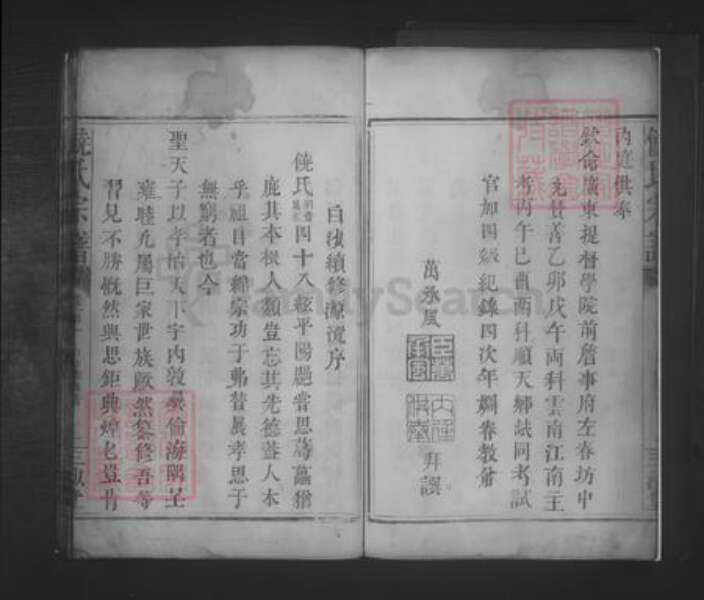 內廷供奉
欽命廣東提督學院前詹事府左春坊中
允贊善乙卯戊午兩科雲南江南主
考丙午己酉兩科順天鄉試同考試
官加四級紀錄四次年姻眷教弟
萬承風
拜譔
白沙續修源流序
饒氏四十八 平陽 嘗思 猶
庇其本根人類豈忘其先德蓋人本
乎祖自當繹宗功于弗替展孝思于
無窮者也今
聖天子以孝治天下宇內敦彝倫海隅
雍睦九屬巨家世族厥然纂修吾等
習見不勝慨然興思鉅典 豈肯
饒氏宗譜
FamilySearch